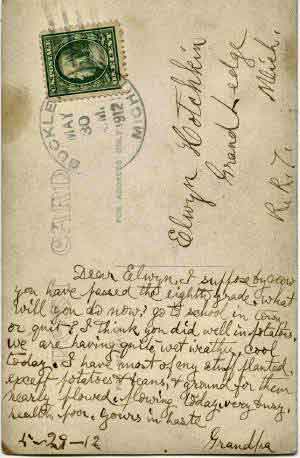 BUCKLEY
MAY
30
A.M.
1912
MICH.
CARD
FOR ADDRESS ONLY
Elwyn Hotchkin
Grand Ledge
Mich.
R. R. 7.
Dear Elwyn, I suppose by now
you have passed the eighth grade. what
will you do now? go to school in town
or quit? I think you did well in potatoes.
we are having quite wet weather, cool
today. I have most of my stuff planted
except potatoes & beans, & ground for them
nearly plowed. plowing today. very busy.
health poor. yours in haste
5-29-12
Grandpa